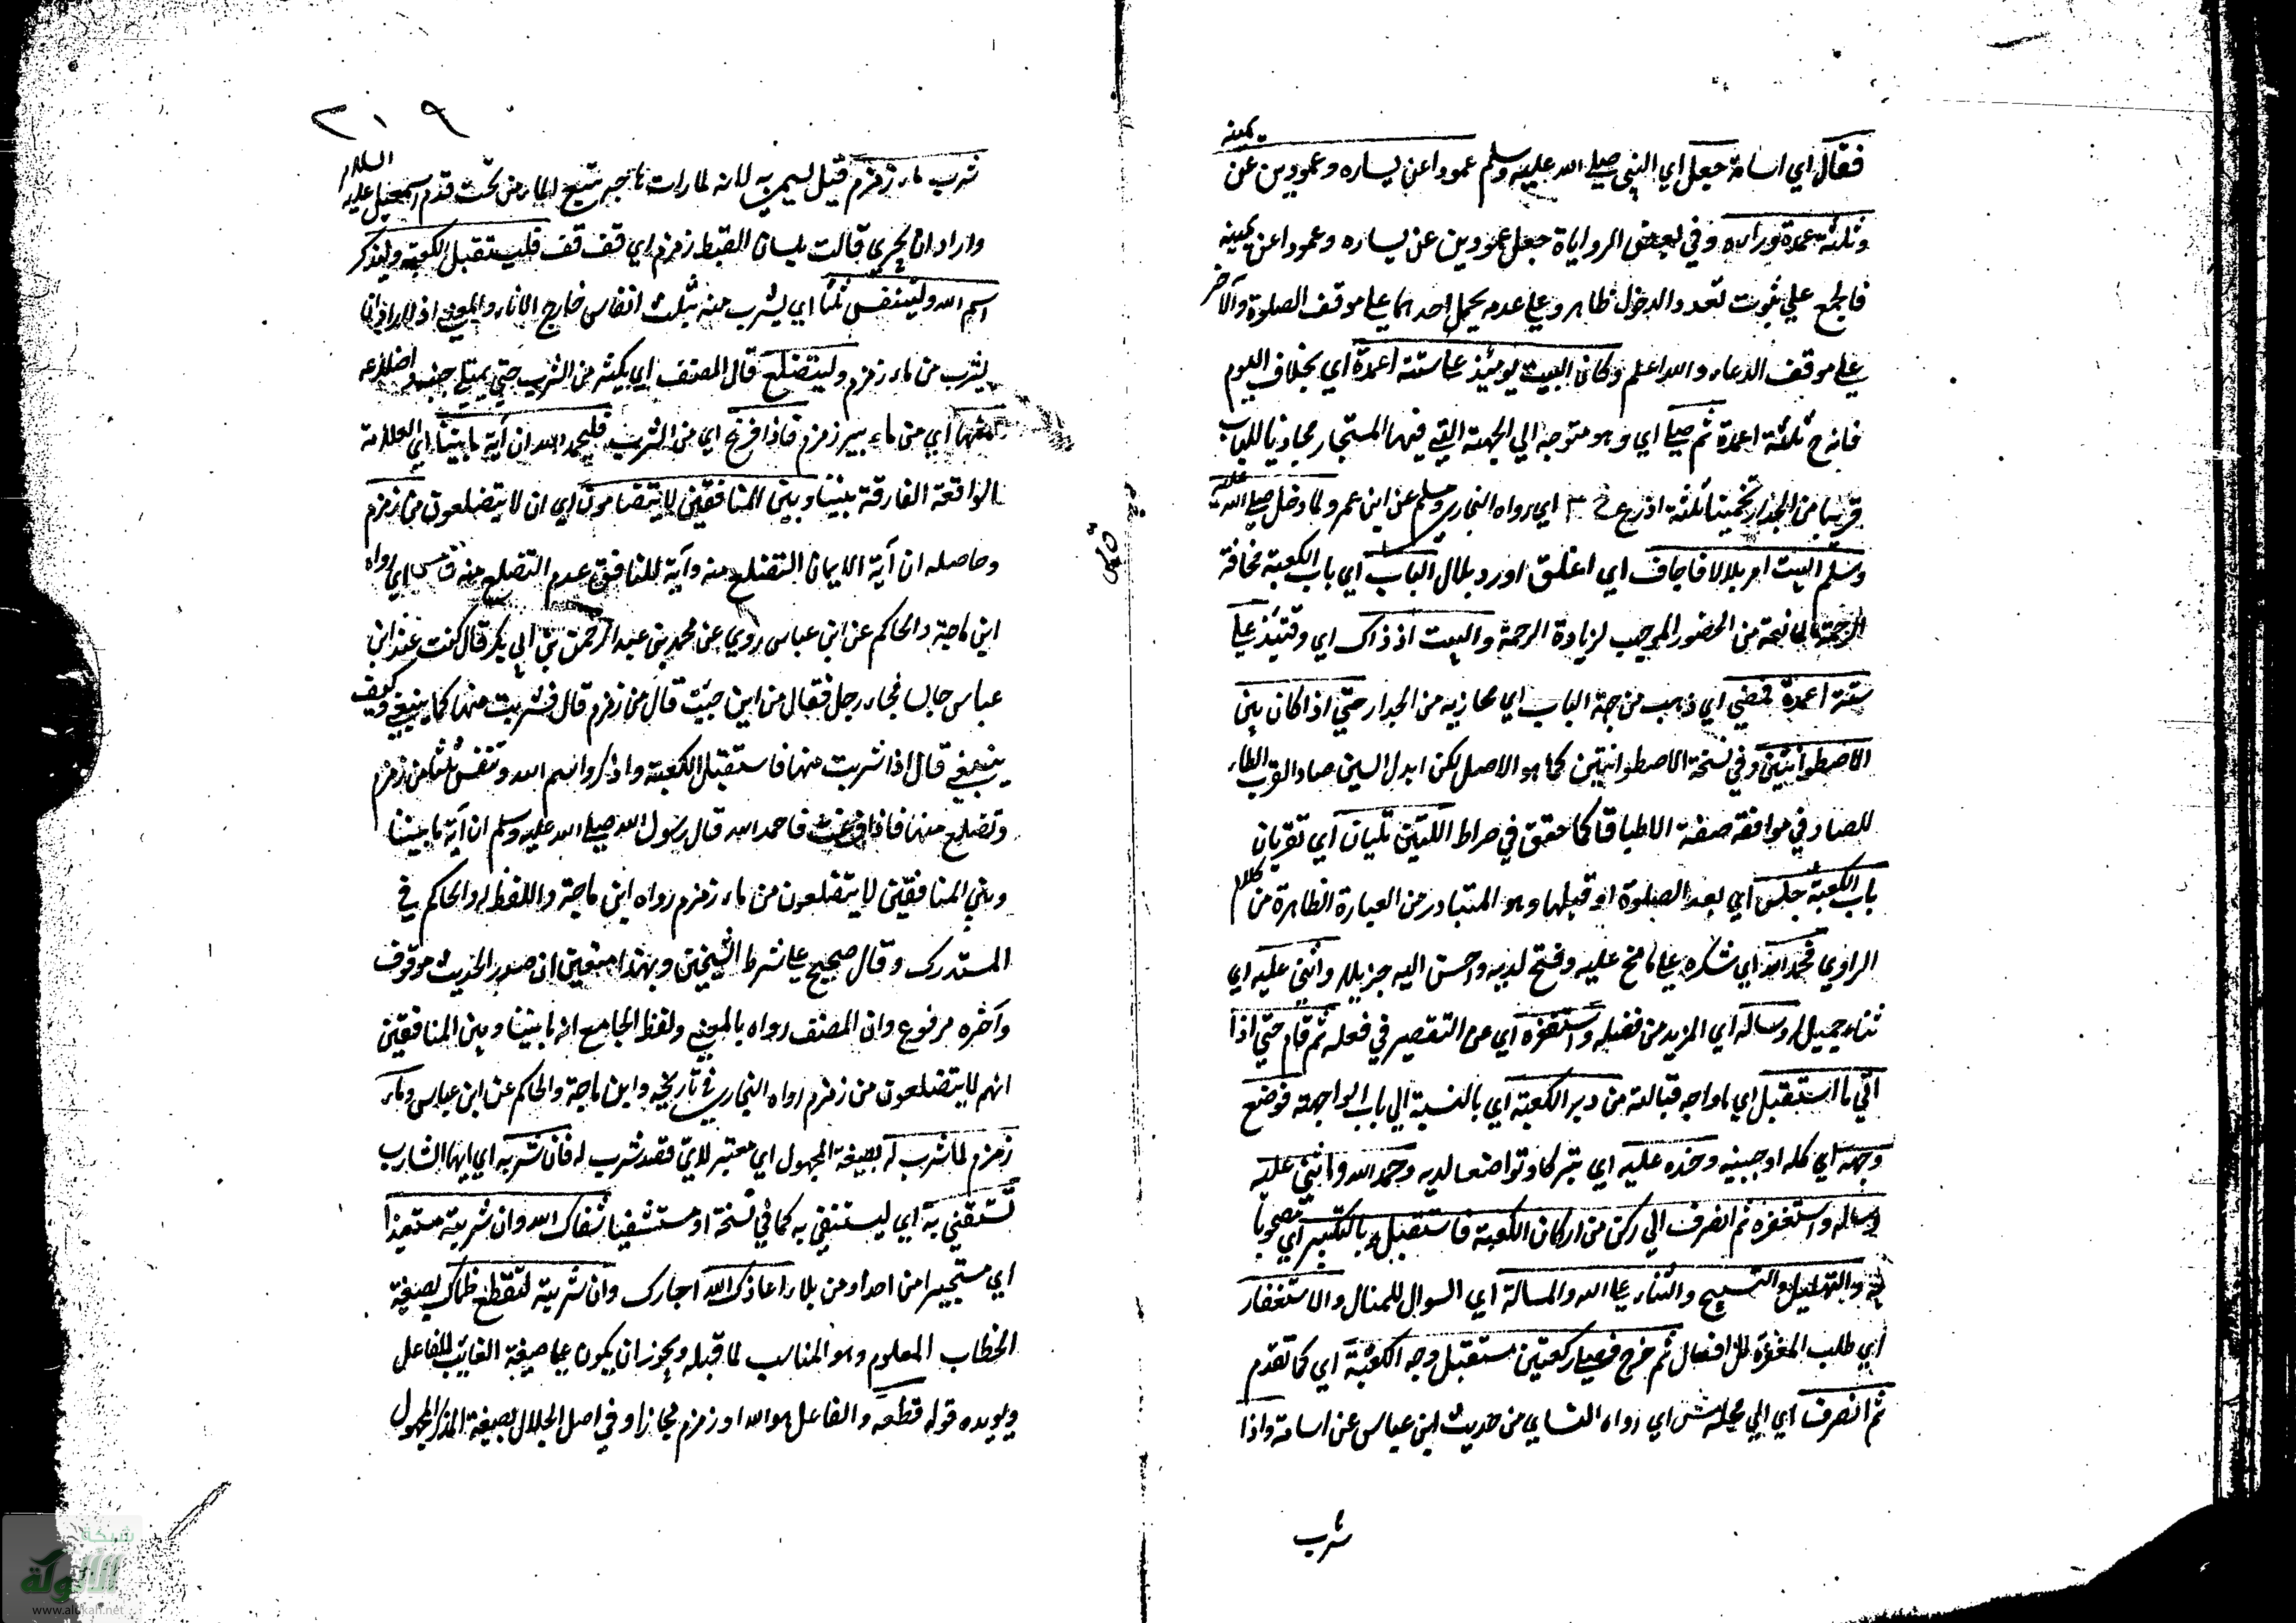 فقال اي اسامة جعل اي النبي صلي الله عليه وسلم عمودا عن يساره وعمودين عن يمينه
وثلثة اعمدة وراءه وفي بعض الرواياة جعل عمودين عن يساره وعمودا عن يمينه
فالجمع علي ثبوت تعدد الدخول ظاهر وعلي عدمه يحمل احدهما علي موقف الصلوة والآخر
علي موقف الدعاء والله اعلم وكان البيت يومئذ علي ستة اعمدة اي بخلاف اليوم
فانه ح ثلثة اعمدة ثم صلي اي وهو متوجه الي الجهة التي فيها المستجار محاذيا للباب
قريبا من الجدار تخمينا ثلثة اذرع خ م اي رواه البخاري ومسلم عن ابن عمر ولما دخل صلي الله عليه
وسلم البيت امر بلالا فاجاف اي اغلق اورد بلال الباب اي باب الكعبة مخافة
الزحمة المانعة من الحضور الموجب لزيادة الرحمة والبيت اذ ذاك اي وقتئذ علي
ستة اعمدة فمضي اي ذهب من جهة الباب اي محاذيه من الجدار حتي اذا كان بين
الاصطوانتين وفي نسخة الاسطوانتين كما هو الاصل لكن ابدل السين صادا لقرب الطاء
للصاد في موافقة صفة الاطباق كما حقق في صراط اللتين تليان اي تقربان
باب الكعبة جلس اي بعد الصلوة او قبلها وهو المتبادر من العبارة الظاهرة من كلام
الراوي فحمد الله اي شكره علي ما منح عليه وفتح لديه واحسن اليه جزيلا واثني عليه اي
ثناء جميلا وساله اي المزيد من فضله واستغفره اي عن التقصير في فعله ثم قام حتي اذا
اتي ما استقبل اي ما واجه قبالته من دبر الكعبة اي بالنسبة الي باب الواجهة فوضع
وجهه اي كله او جبينه وخده عليه اي تبركا وتواضعا لديه وحمد الله واثني عليه
وساله واستغفره ثم انصرف الي ركن من اركان الكعبة فاستقبله بالتكبير اي مصحوبا
به والتهليل والتسبيح والثناء علي الله والمسالة اي السوال للمنال والاستغفار
اي طلب المغفرة للافعال ثم خرج فصلي ركعتين مستقبل وجه الكعبة اي كما تقدم
ثم انصرف اي الي محله س اي رواه النساي من حديث ابن عباس عن اسامة واذا
شرب
٢١٩
شرب ماء زمزم قيل سمي به لانه لما رات هاجر تنبع الماء من تحت قدم اسمعيل عليه السلام
واراد ان يجري قالت بلسان القبط زمزم اي قف قف فليستقبل الكعبة وليذكر
اسم الله وليتنفس ثلثا اي يشرب منه بثلث انفاس خارج الاناء والمعني اذا اراد ان
يشرب من ماء زمزم وليتضلع قال المصنف اي يكثر من الشرب حتي يمتلي جنبه واضلاعه
منها اي من ماء بير زمزم فاذا فرغ اي من الشرب فليحمد الله ان آية ما بيننا اي العلامة
الواقعة الفارقة بيننا وبين المنافقين لا يتضلعون اي ان لا يتضلعون من زمزم
وحاصله ان آية الايمان التضلع منه وآية للنافق عدم التضلع منه ق مس اي رواه
ابن ماجة والحاكم عن ابن عباس روي عن محمد بن عبد الرحمن بن ابي بكر قال كنت عند ابن
عباس جالسا فجاء رجل فقال من اين جئت قال من زمزم قال فشربت منها كما ينبغي وكيف
ينبغي قال اذا شربت منها فاستقبل الكعبة واذكروا اسم الله وتنفس ثلثا من زمزم
وتضلع منها فاذا فرغت فاحمد الله قال رسول الله صلي الله عليه وسلم ان آية ما بيننا
وبين المنافقين لا يتضلعون من ماء زمزم رواه ابن ماجة واللفظ له والحاكم في
المستدرك وقال صحيح علي شرط الشيخين وبهذا متعين ان صدر الحديث موقوف
وآخره مرفوع وان المصنف رواه بالمعني ولفظ الجامع آية ما بيننا وبين المنافقين
انهم لا يتضلعون من زمزم رواه البخاري في تاريخه وابن ماجة والحاكم عن ابن عباس وماء
زمزم لما شرب له بصيغة المجهول اي معتبر لاي قصد شرب له فان شربه اي ايها الشارب
تستشفي به اي ليستشفي به كما في نسخة او مستشفيا شفاك الله وان شربته مستعيذا
اي مستجيرا من احد او من بلاء اعاذك الله اجارك وان شربته لتقطع ظماك بصيغة
الخطاب المعلوم وهو المناسب لما قبله ويجوز ان يكون علي صيغة الغائب للفاعل
ويويده قوله قطعه والفاعل هو الله او زمزم مجازا وفي اصل الجلال بصيغة المذكر المجهول
شبكة
الألوكة
www.alukah.net